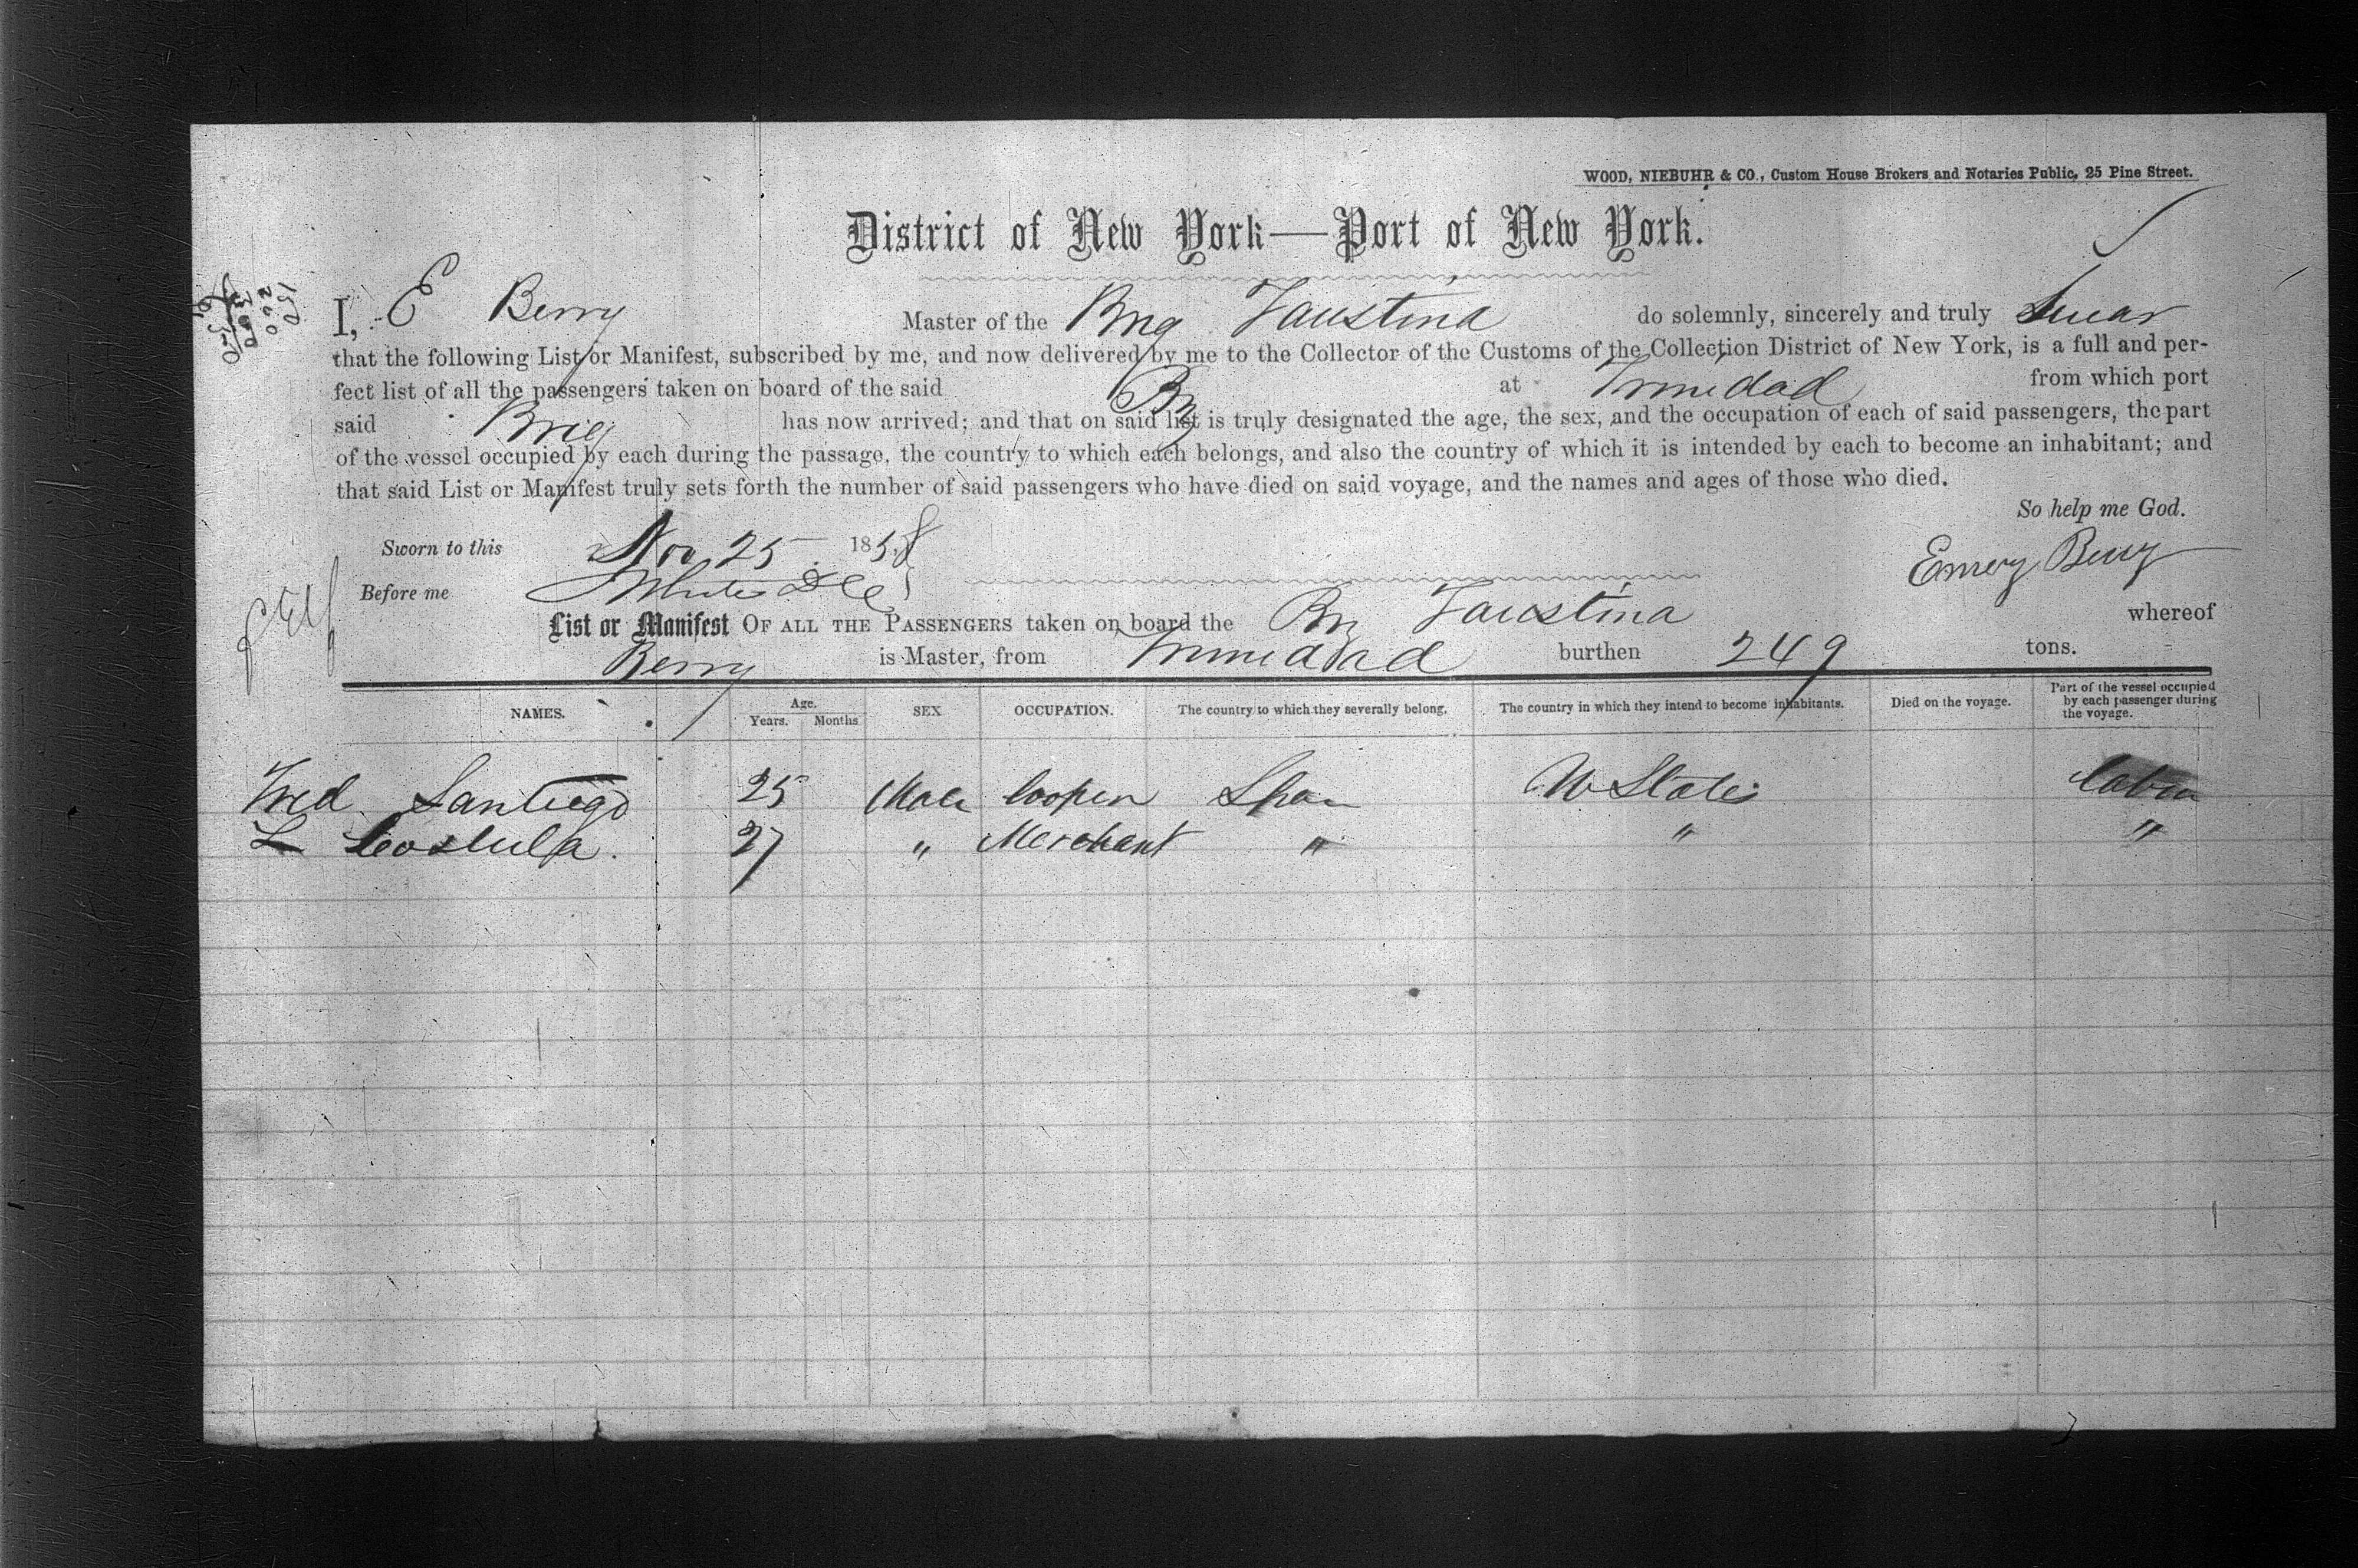 WOOD, NIEBUHR & CO., Custom House Brokers and Notaries Public, 25 Pine Street.
District of New York—Port of New York.
I, E Berry Master of the Brig Faustina do solemnly, sincerely and truly Swear
that the following List or Manifest, subscribed by me, and now delivered by me to the Collector of the Customs of the Collection District of New York, is a full and per-
fect list of all the passengers taken on board of the said Brig at Trinidad from which port
said Brig has now arrived; and that on said list is truly designated the age, the sex, and the occupation of each of said passengers, the part
of the vessel occupied by each during the passage, the country to which each belongs, and also the country of which it is intended by each to become an inhabitant; and
that said List or Manifest truly sets forth the number of said passengers who have died on said voyage, and the names and ages of those who died.
So help me God.
Sworn to this Nov 25 1858
Emery Berry
Before me
List or Manifest OF ALL THE PASSENGERS taken on board the Br Faustina whereof
Berry is Master, from Trinidad burthen 249 tons.
NAMES. Age. Years. Months SEX OCCUPATION. The country to which they severally belong. The country in which they intend to become inhabitants. Died on the voyage. Part of the vessel occupied by each passenger during the voyage.
Fred Santiago 25 Male Cooper Spain U States Cabin
L 27 " Merchant " " "